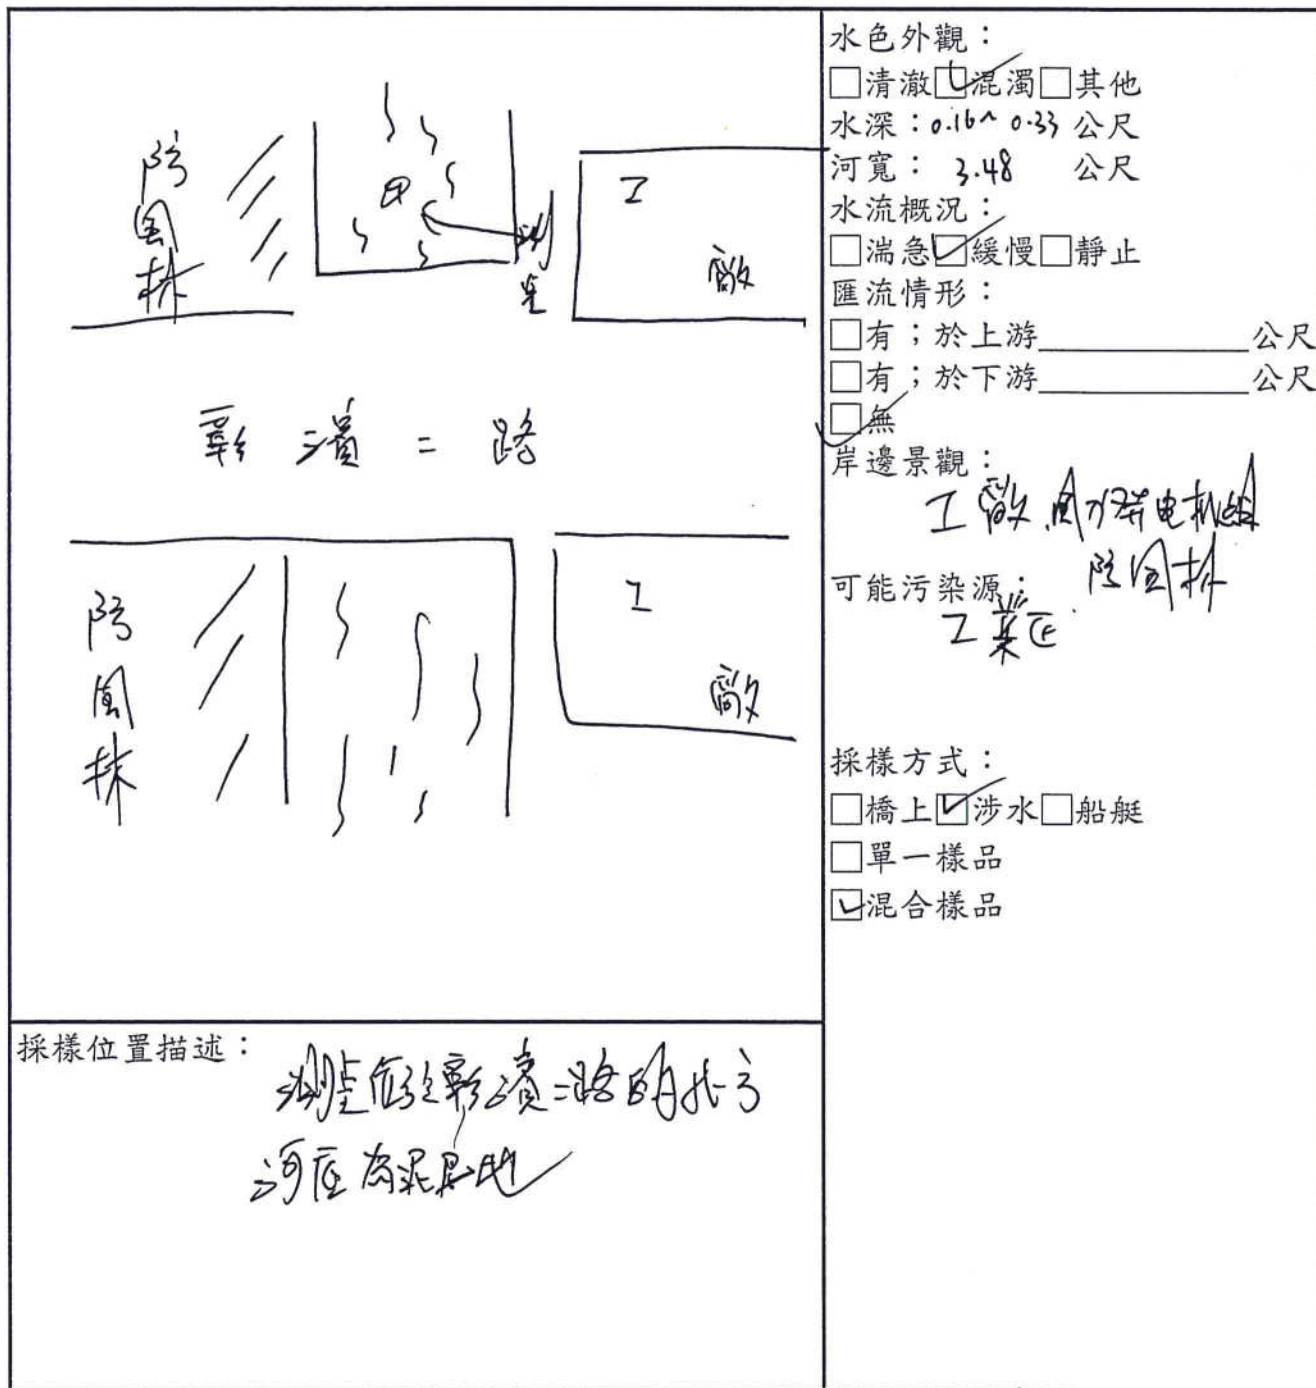 防風林
測站
工廠
彰濱二路
防風林
工廠
水色外觀：
□清澈☑混濁□其他
水深：0.16~0.33 公尺
河寬：3.48 公尺
水流概況：
□湍急☑緩慢□靜止
匯流情形：
□有；於上游__________公尺
□有；於下游__________公尺
☑無
岸邊景觀：
工廠、風力發电机組
防風林
可能污染源：
工業区
採樣方式：
□橋上☑涉水□船艇
□單一樣品
☑混合樣品
採樣位置描述：
測站位於彰濱二路的北方
河底為泥質地